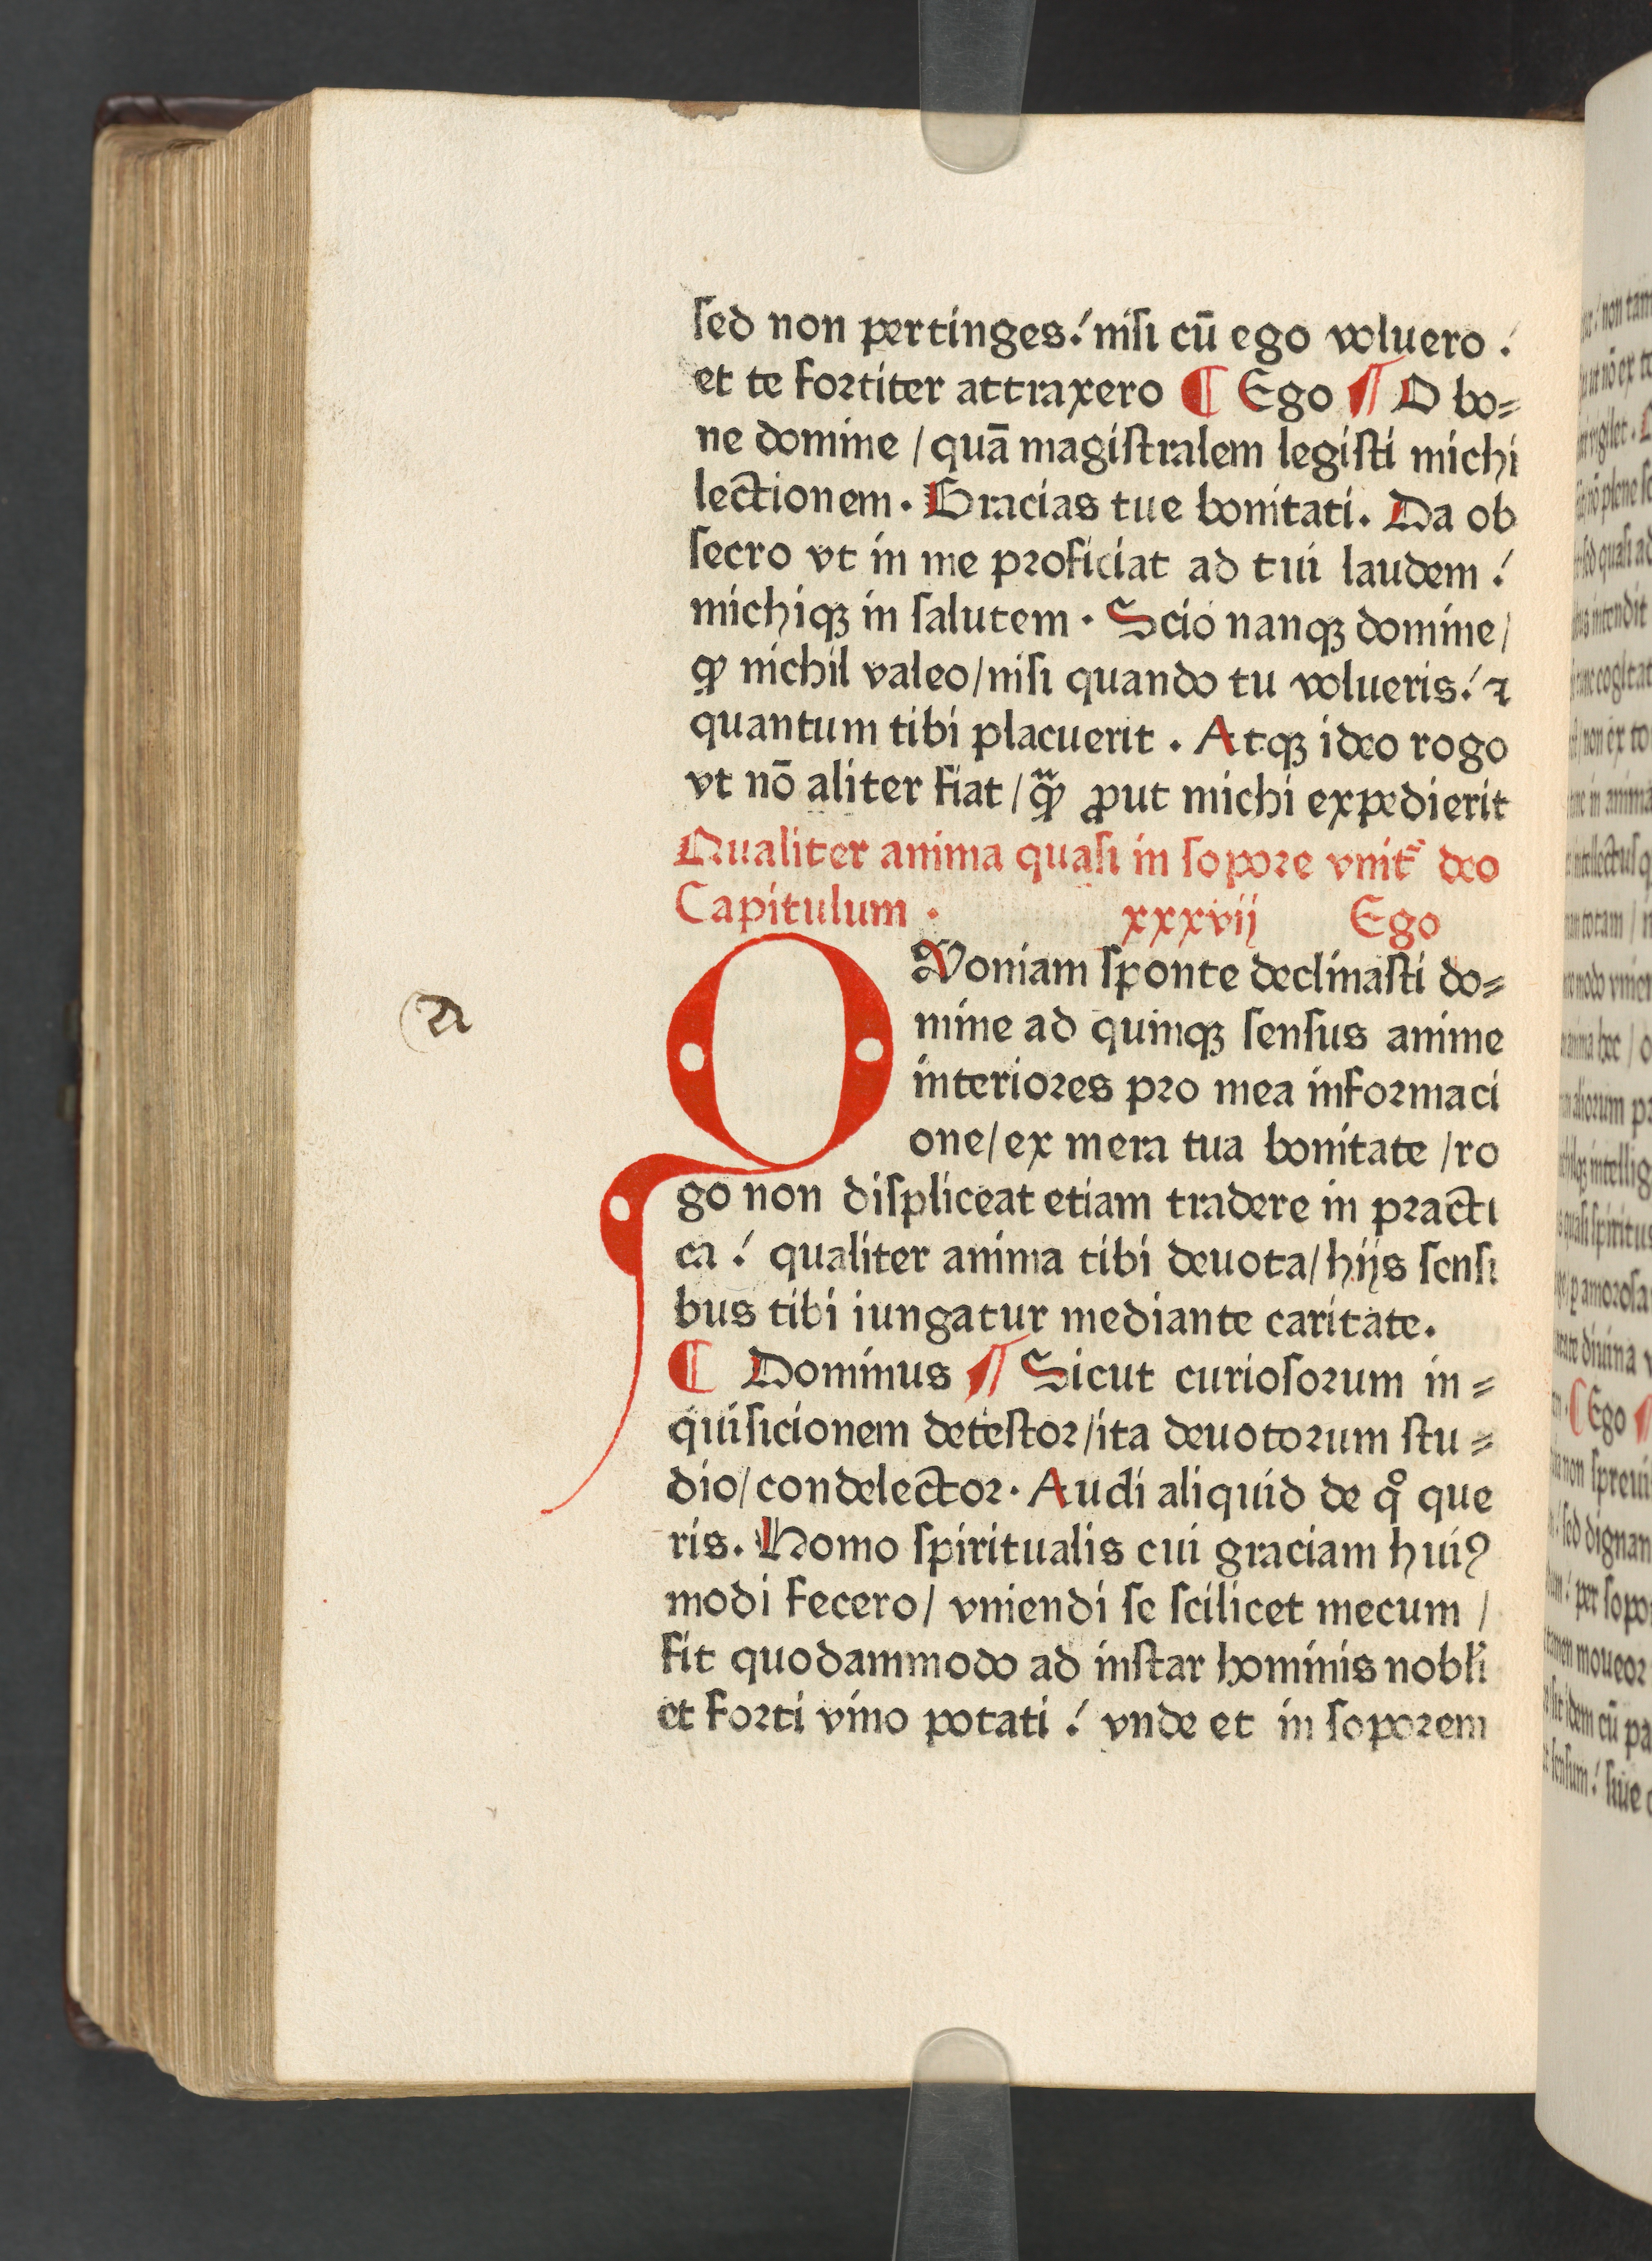 sed non pertinges! nisi cū ego voluero !
et te fortiter attraxero ¶ Ego ¶ O bo=
ne domine / quā magistralem legisti michi
lectionem. Gracias tue bonitati. Da ob
secro vt in me proficiat ad tui laudem !
michiqꝫ in salutem. Scio nanqꝫ domine/
ꝙ nichil valeo/nisi quando tu volueris! ⁊
quantum tibi placuerit. Atqꝫ ideo rogo
vt nō aliter fiat / ꝙ̈ ꝓut michi expedierit
Qualiter anima quasi in sopore vnit᷑ deo
Capitulum. xxxvij Ego
QVoniam sponte declinasti do=
mine ad quinqꝫ sensus anime
interiores pro mea informaci
one/ex mera tua bonitate /ro
go non displiceat etiam tradere in practi
ca ! qualiter anima tibi deuota/hijs sensi
bus tibi iungatur mediante caritate.
¶ Dominus ¶ Sicut curiosorum in=
quisicionem detestor/ita deuotorum stu=
dio/condelector. Audi aliquid de qͦ que
ris. Homo spiritualis cui graciam huiꝰ
modi fecero/ vniendi se scilicet mecum /
fit quodammodo ad instar hominis nobli
et forti vino potati ! vnde et in soporem